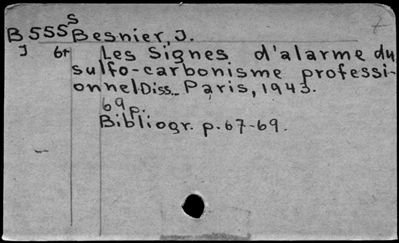 B 555s Besnier, J.
J 6r Les Signes d'alarme du
sulfo-carbonisme professi-
onnel. Diss... Paris, 1943.
69p.
Bibliogr. p. 67-69.